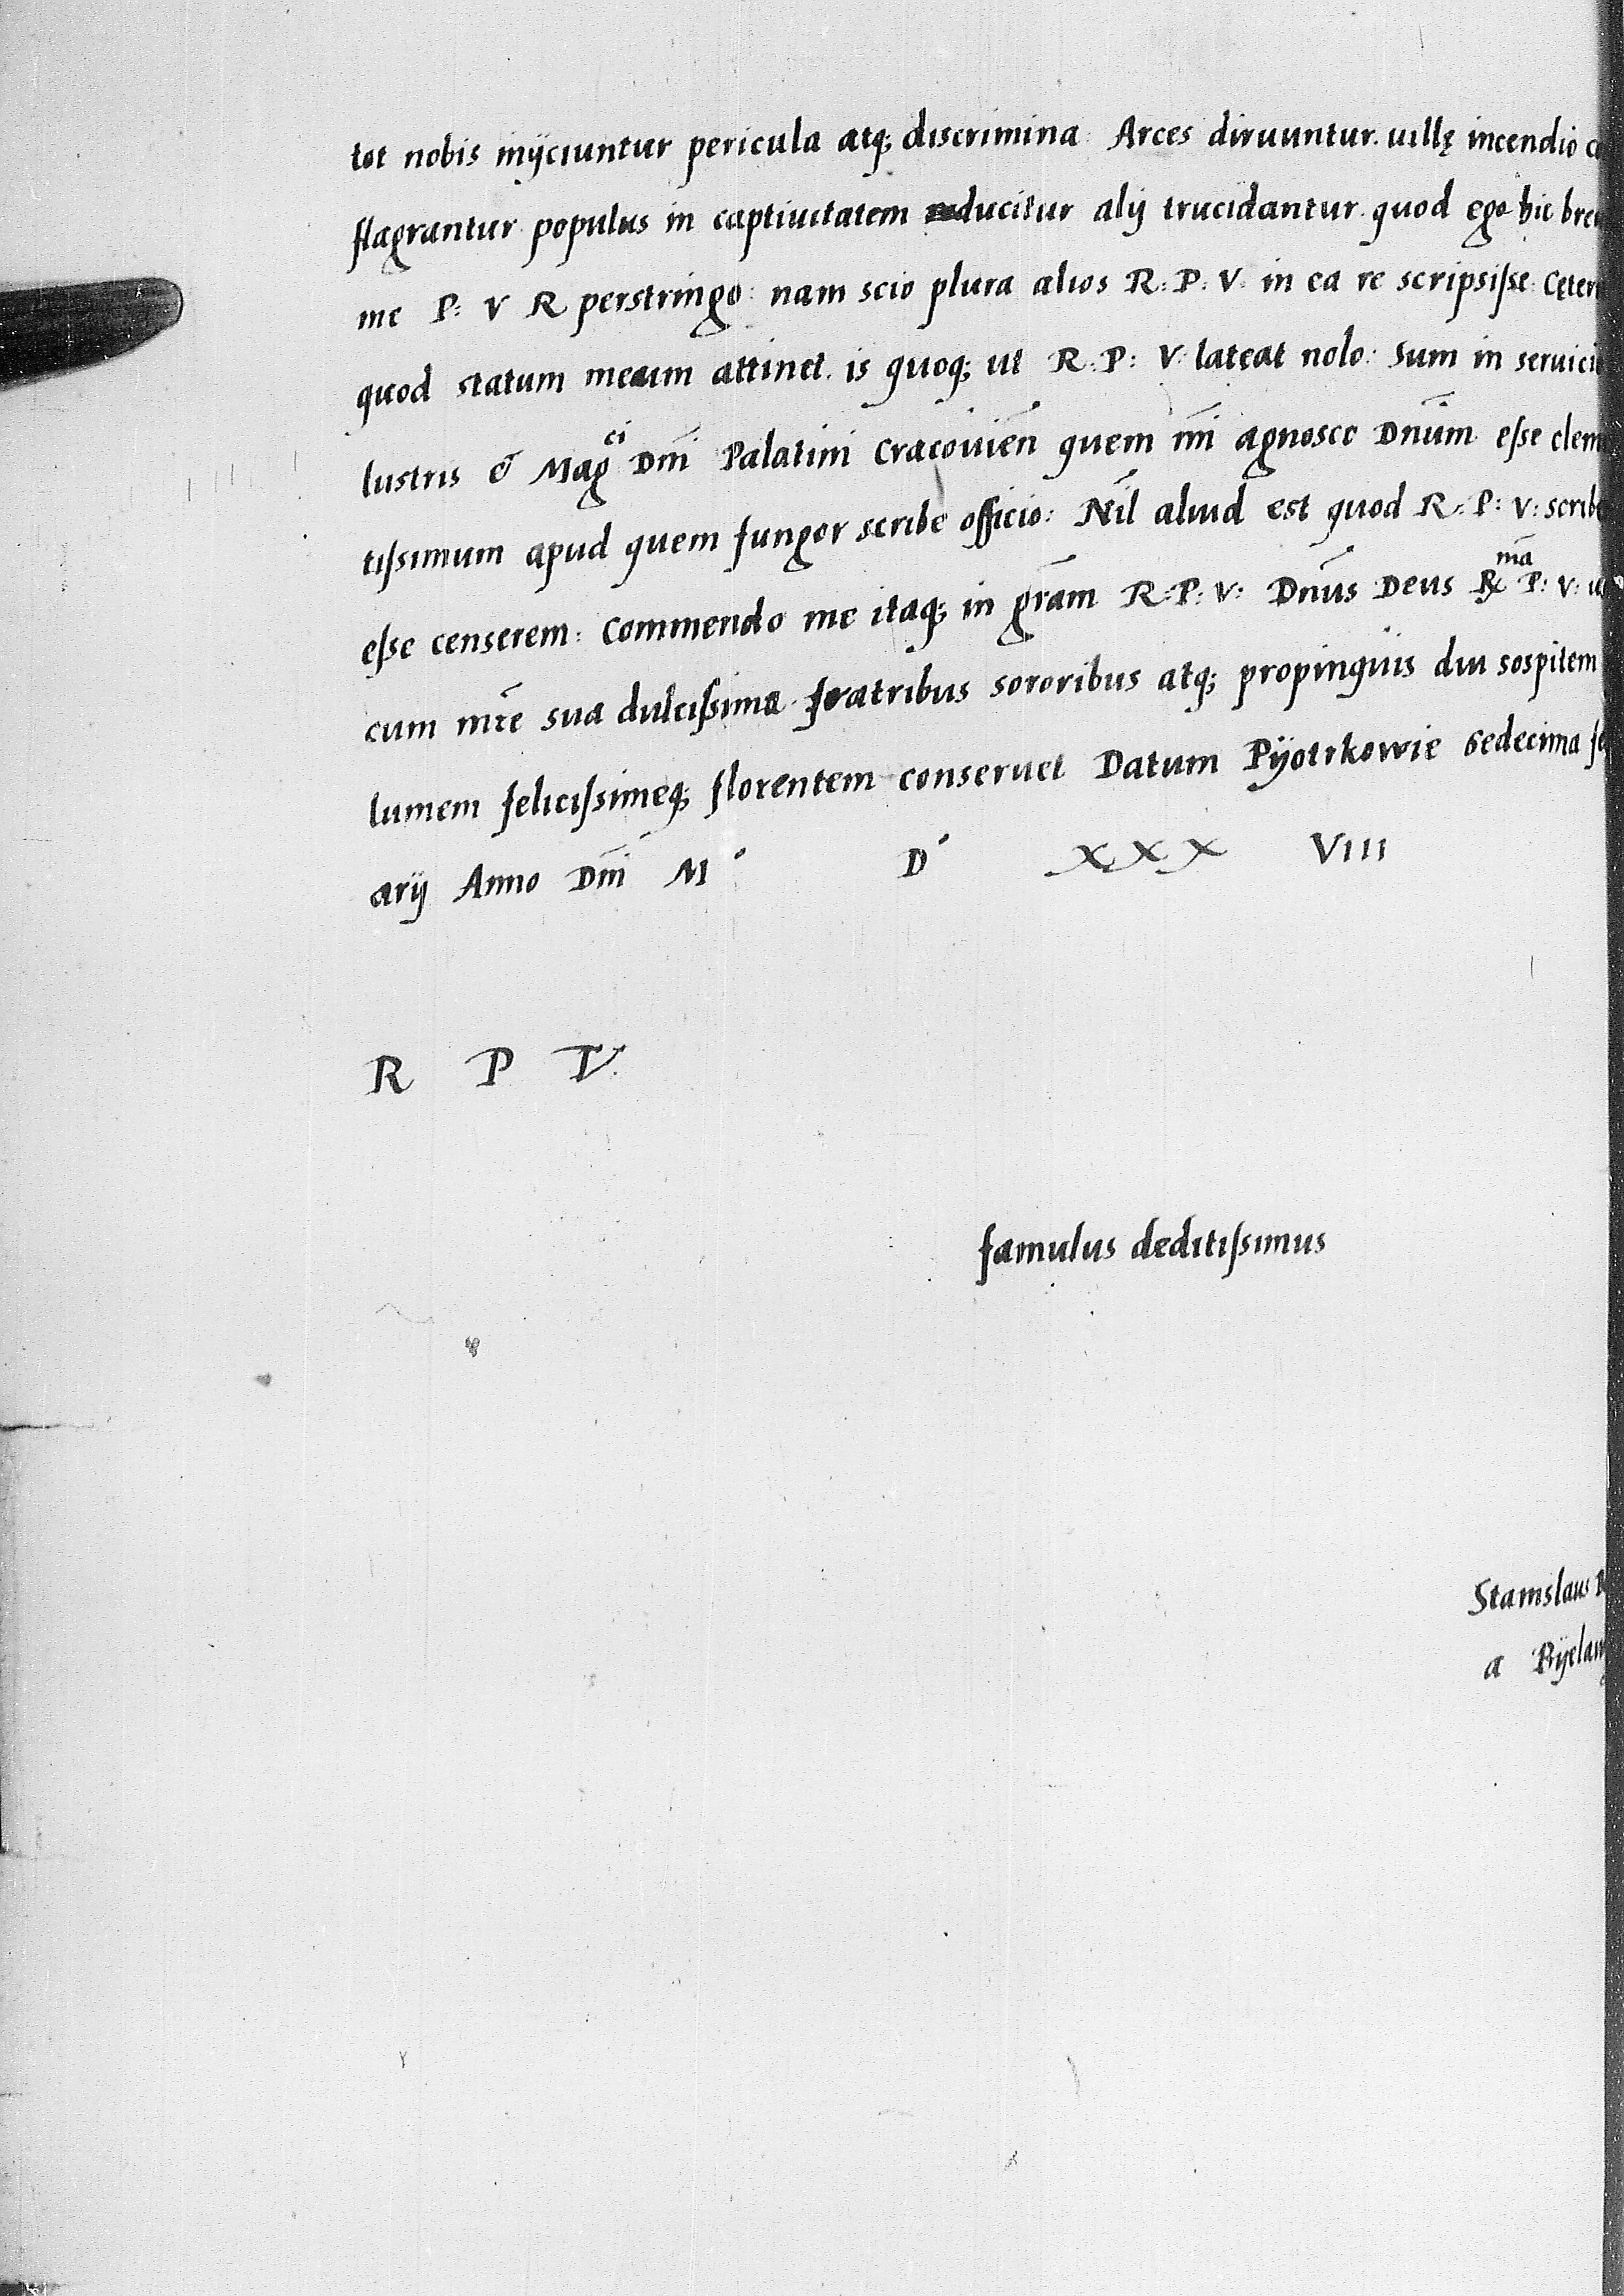 tot nobis inijciuntur pericula atq; discrimina. Arces diruuntur. uillę incendio
flagrantur populus in captiuitatem ducitur alij trucidantur. quod ego hic
me P: V R perstringo: nam scio plura alios R: P: V: in ea re scripsisse:
quod statum meum attinet. is quoq; ut R: P: V: lateat nolo: Sum in
lustris & Mag^ci Dñi Palatini Cracouieñ quem mi agnosco Dnum̃ esse
tissimum apud quem fungor scribe officio: Nil aliud est quod R: P: V:
esse censerem: Commendo me itaq; in grãm R: P: V: Dñus Deus R^ma P: V:
cum mr̃e sua dulcissima. fratribus sororibus atq; propinquis diu sospitem
lumem felicissimeq; florentem conseruet Datum Pÿotrkowie Sedecima
arij Anno Dñi M° D° XXX VIII
R P V.
famulus deditissimus
Stanislaus
a